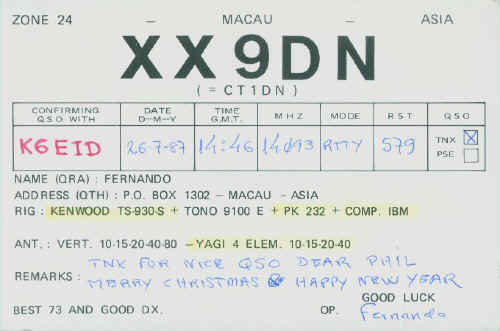 ZONE 24 - MACAU - ASIA
XX9DN
( = CT1DN )
CONFIRMING QSO WITH DATE D-M-Y TIME G.M.T. MHZ MODE RST QSO
K6EID 26-7-87 14:46 14093 RTTY 579 TNX PSE
NAME (QRA) : FERNANDO
ADDRESS (QTH) : P.O. BOX 1302 - MACAU - ASIA
RIG : KENWOOD TS-930-S + TONO 9100 E + PK 232 + COMP. IBM
ANT. : VERT. 10-15-20-40-80 - YAGI 4 ELEM. 10-15-20-40
TNK FOR NICE QSO DEAR PHIL
REMARKS : MERRY CHRISTMAS & HAPPY NEW YEAR
GOOD LUCK
BEST 73 AND GOOD DX. OP. Fernando